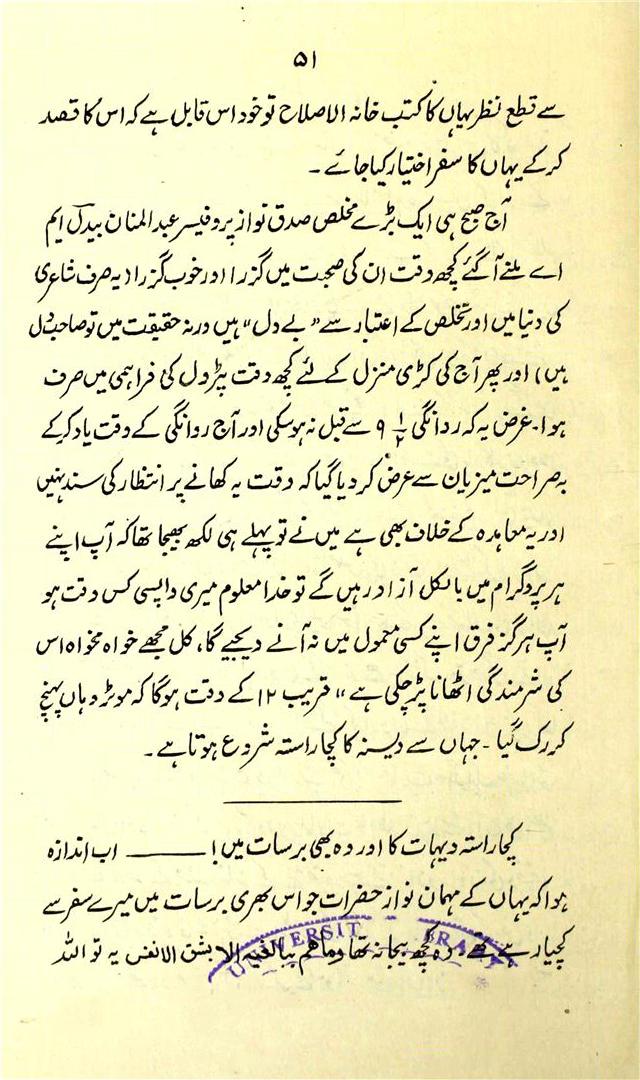 ۵۱
سے قطع نظر یہاں کا کتب خانہ الاصلاح تو خود اس قابل ہے کہ اس کا قصد
کر کے یہاں کا سفر اختیار کیا جائے ۔
آج صبح ہی ایک بڑے مخلص صدق نواز پروفیسر عبدالمنان بیدلؔ ایم
اے ملنے آگئے کچھ وقت ان کی صحبت میں گزرا اور خوب گزرا (یہ صرف شاعری
کی دنیا میں اور تخلص کے اعتبار سے "بے دل" ہیں ورنہ حقیقت میں تو صاحب دل
ہیں) اور پھر آج کی کڑی منزل کے لئے کچھ وقت پٹرول کی فراہمی میں صرف
ہوا ۔ غرض یہ کہ روانگی ۹ ۱/۲ سے قبل نہ ہو سکی اور آج روانگی کے وقت یاد کر کے
بہ صراحت میزبان سے عرض کر دیا گیا کہ وقت یہ کھانے پر انتظار کی سند نہیں
اور یہ معاہدہ کے خلاف بھی ہے میں نے تو پہلے ہی لکھ بھیجا تھا کہ آپ اپنے
ہر پروگرام میں بالکل آزاد رہیں گے تو خدا معلوم میری واپسی کس وقت ہو
آپ ہرگز فرق اپنے کسی معمول میں نہ آنے دیجیے گا، کل مجھے خواہ مخواہ اس
کی شرمندگی اٹھانا پڑ چکی ہے" قریب ۱۲ کے وقت ہوگا کہ موٹر وہاں پہنچ
کر رک گیا ۔ جہاں سے دیسنہ کا کچا راستہ شروع ہوتا ہے ۔
کچا راستہ دیہات کا اور وہ بھی برسات میں! ——— اب اندازہ
ہوا کہ یہاں کے مہمان نواز حضرات جو اس بھری برسات میں میرے سفر سے
کچیا رہے تھے وہ کچھ بیجا نہ تھا وماھم ببالغیہ الا بشق الانفس یہ تو اللہ
UNIVERSIT RARY